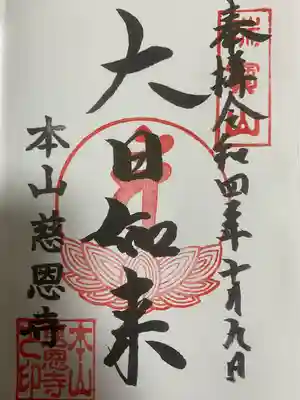 奉拝 令和四年十月九日
大日如来
本山慈恩寺
本山
慈恩寺
之印